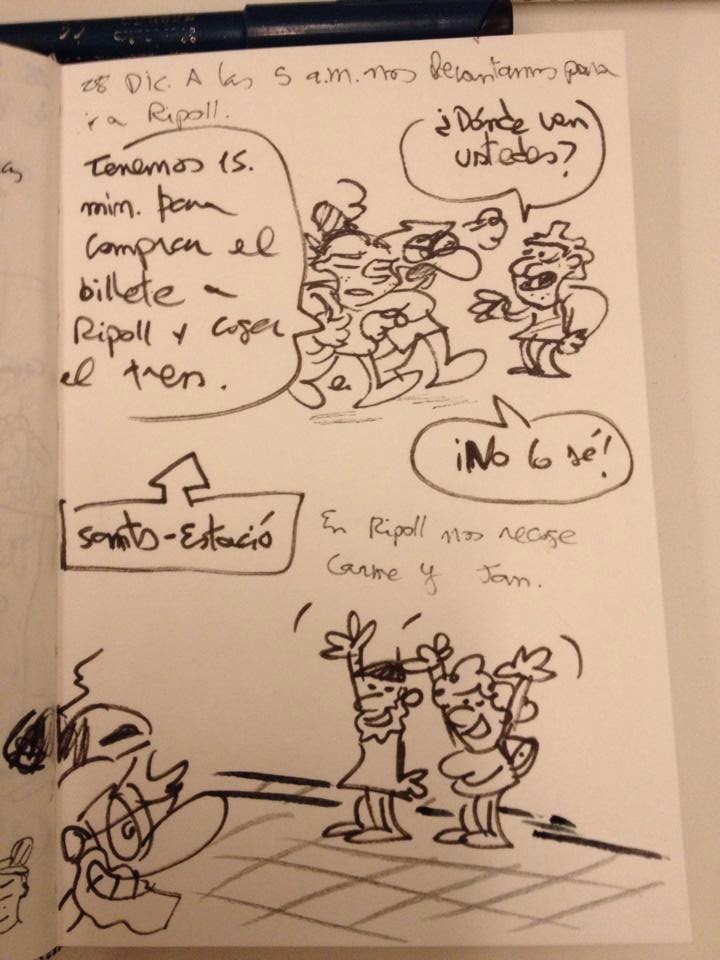 28 Dic. A las 5 a.m. nos levantamos para
ir a Ripoll.
Tenemos 15.
min. para
comprar el
billete a
Ripoll y coger
el tren.
¿Dónde van
ustedes?
¡No lo sé!
Sants-Estació
En Ripoll nos recoge
Carme y Jan.